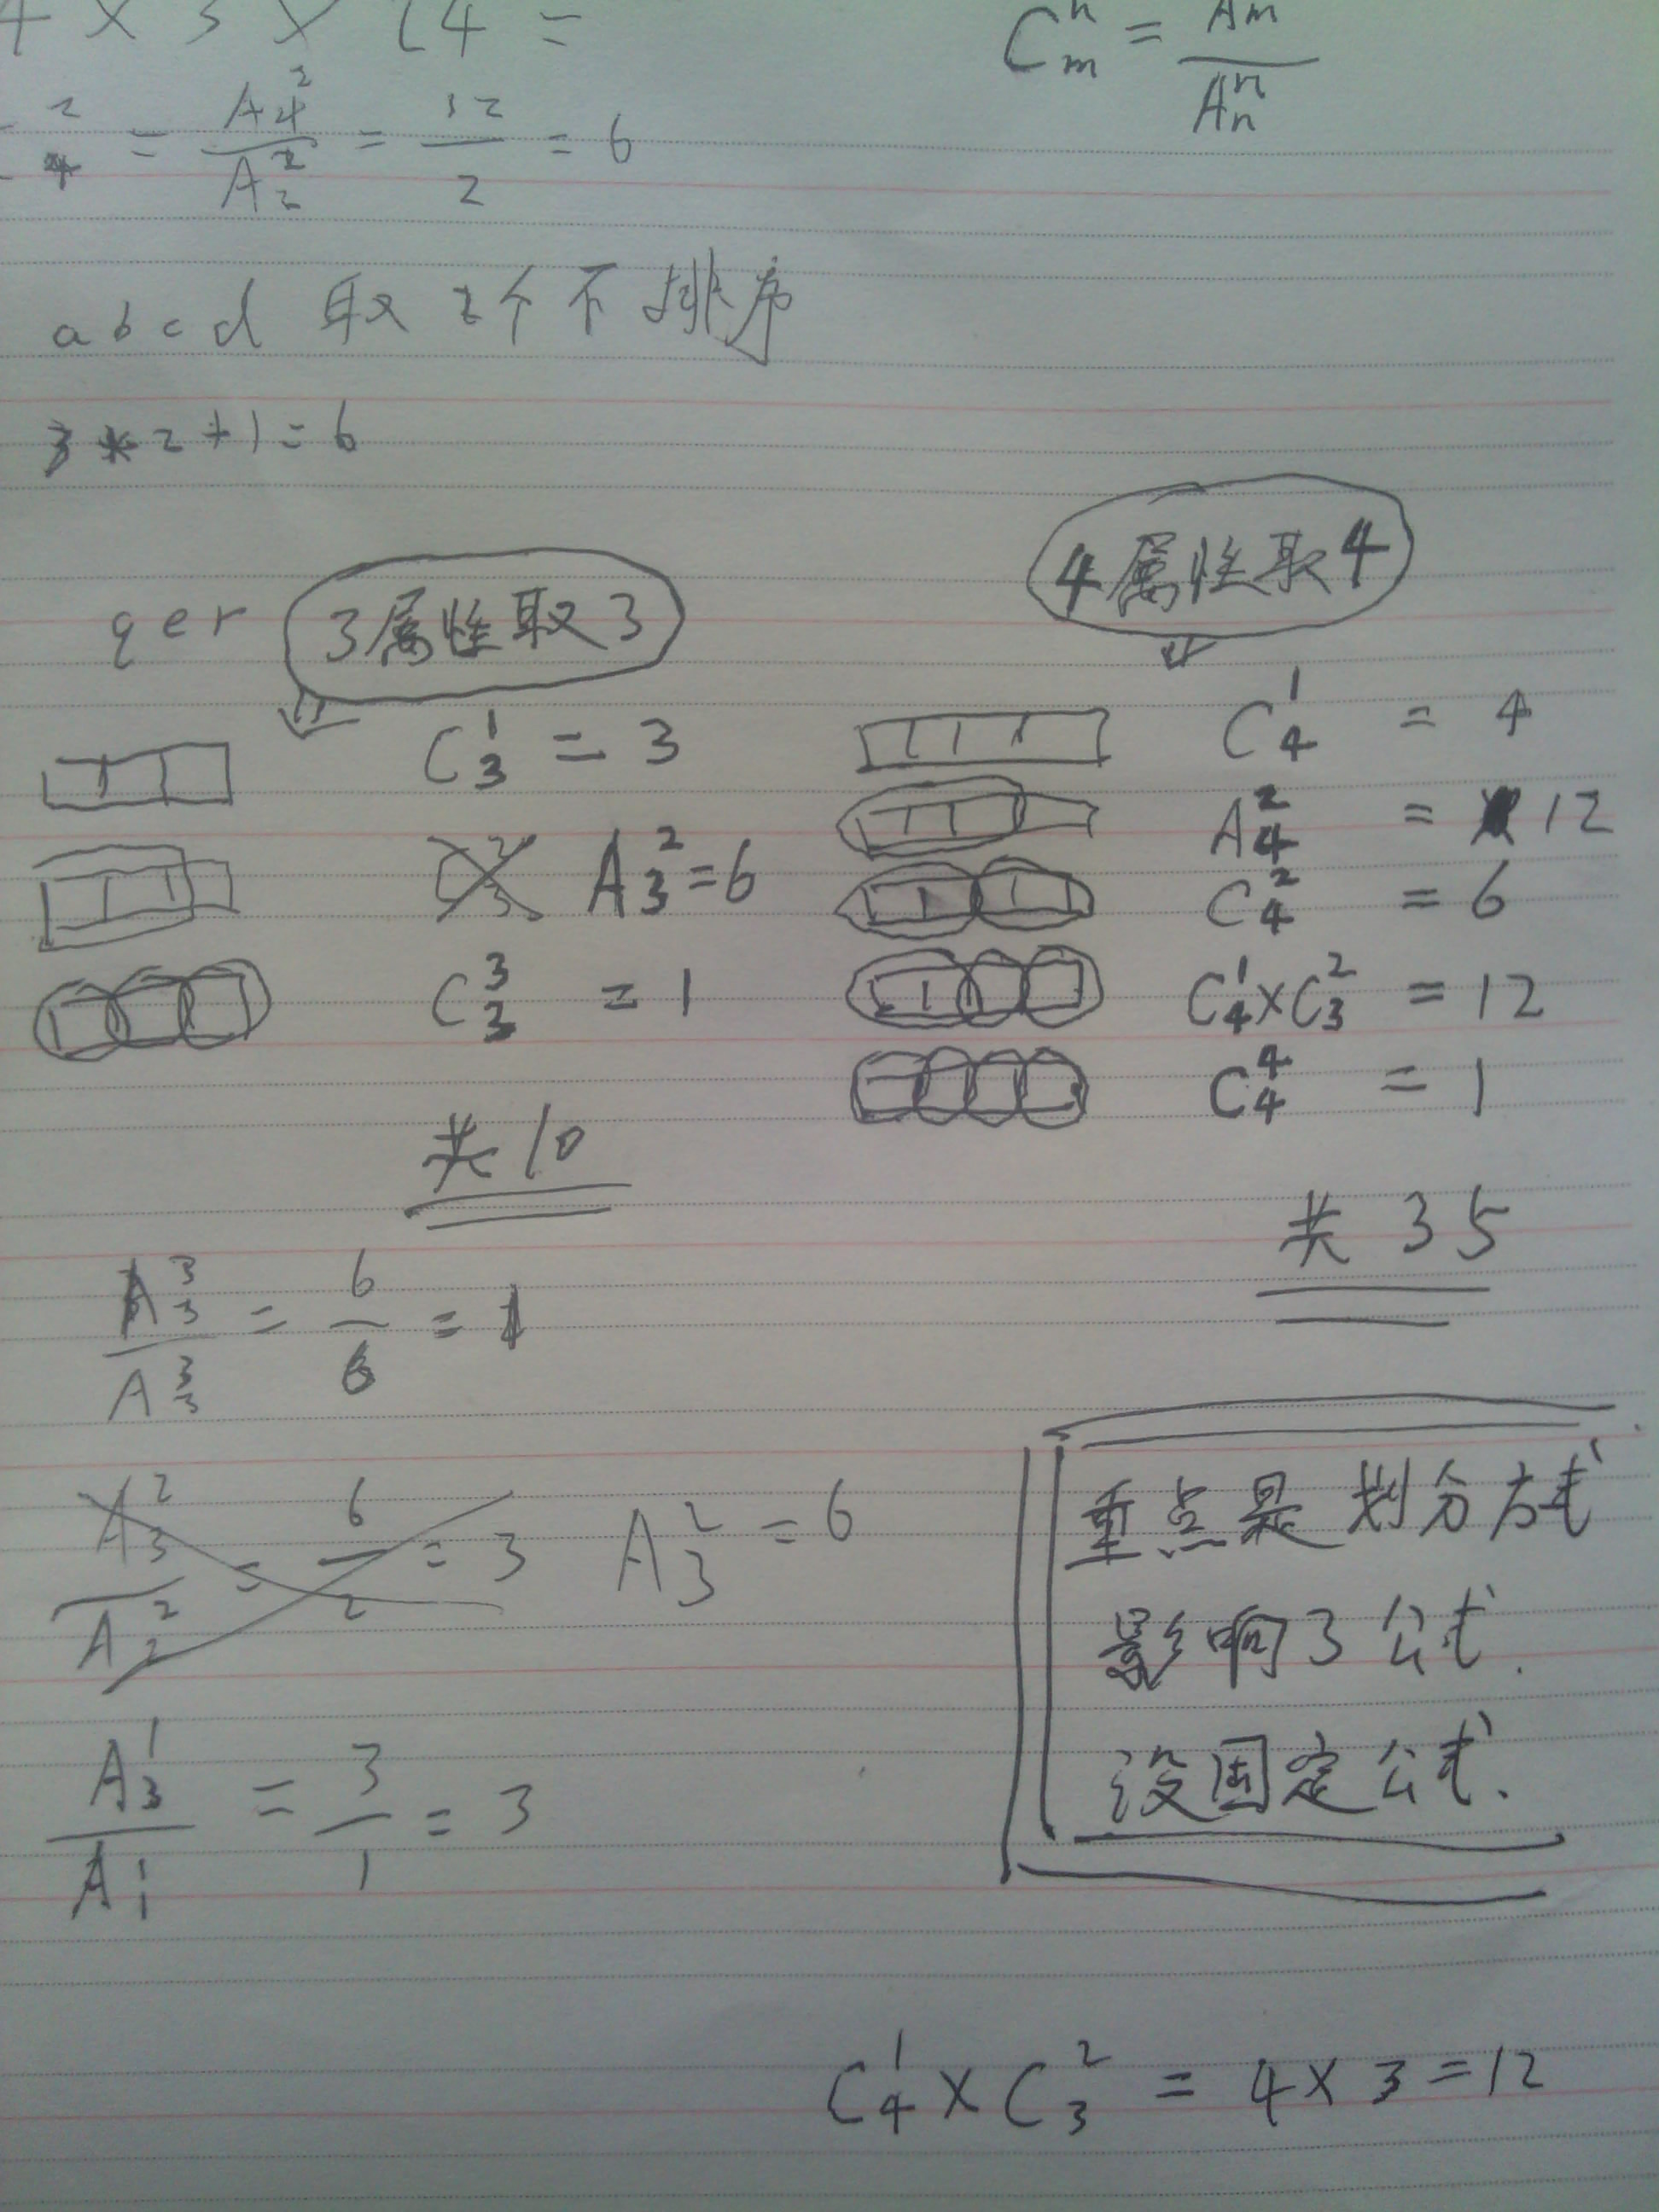 4 × 3 × 24 =
C_m^n = A_m / A_n^n
2/4 = A_4^2 / A_2^2 = 12/2 = 6
a b c d 取 2个不排序
3 * 2 + 1 = 6
qer 3属性取3
C_3^1 = 3
C_3^2 A_3^2 = 6
C_3^3 = 1
共10
4属性取4
C_4^1 = 4
A_4^2 = 12
C_4^2 = 6
C_4^1 × C_3^2 = 12
C_4^4 = 1
共 35
A_3^3 / A_3^3 = 6/6 = 1
A_3^2 / A_2^2 = 6/2 = 3 A_3^2 = 6
A_3^1 / A_1^1 = 3/1 = 3
重点是划分方式
影响了公式.
没固定公式.
C_4^1 × C_3^2 = 4 × 3 = 12